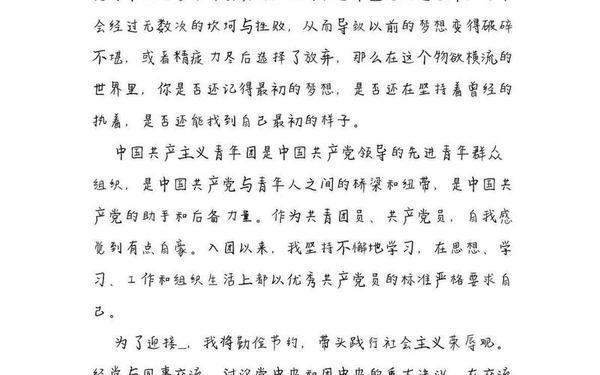 会经过无数次的坎坷与挫败，从而导致以前的梦想变得破碎
不堪，或者精疲力尽后选择了放弃，那么在这个物欲横流的
世界里，你是否还记得最初的梦想，是否还在坚持着曾经的
执着，是否还能找到自己最初的样子。
中国共产主义青年团是中国共产党领导的先进青年群众
组织，是中国共产党与青年人之间的桥梁和纽带，是中国共
产党的助手和后备力量。作为共青团员、共产党员，自我感
觉到有点自豪。入团以来，我坚持不懈地学习，在思想、学
习、工作和组织生活上都以优秀共产党员的标准严格要求自
己。
为了迎接_，我将勤俭节约，带头践行社会主义荣辱观。